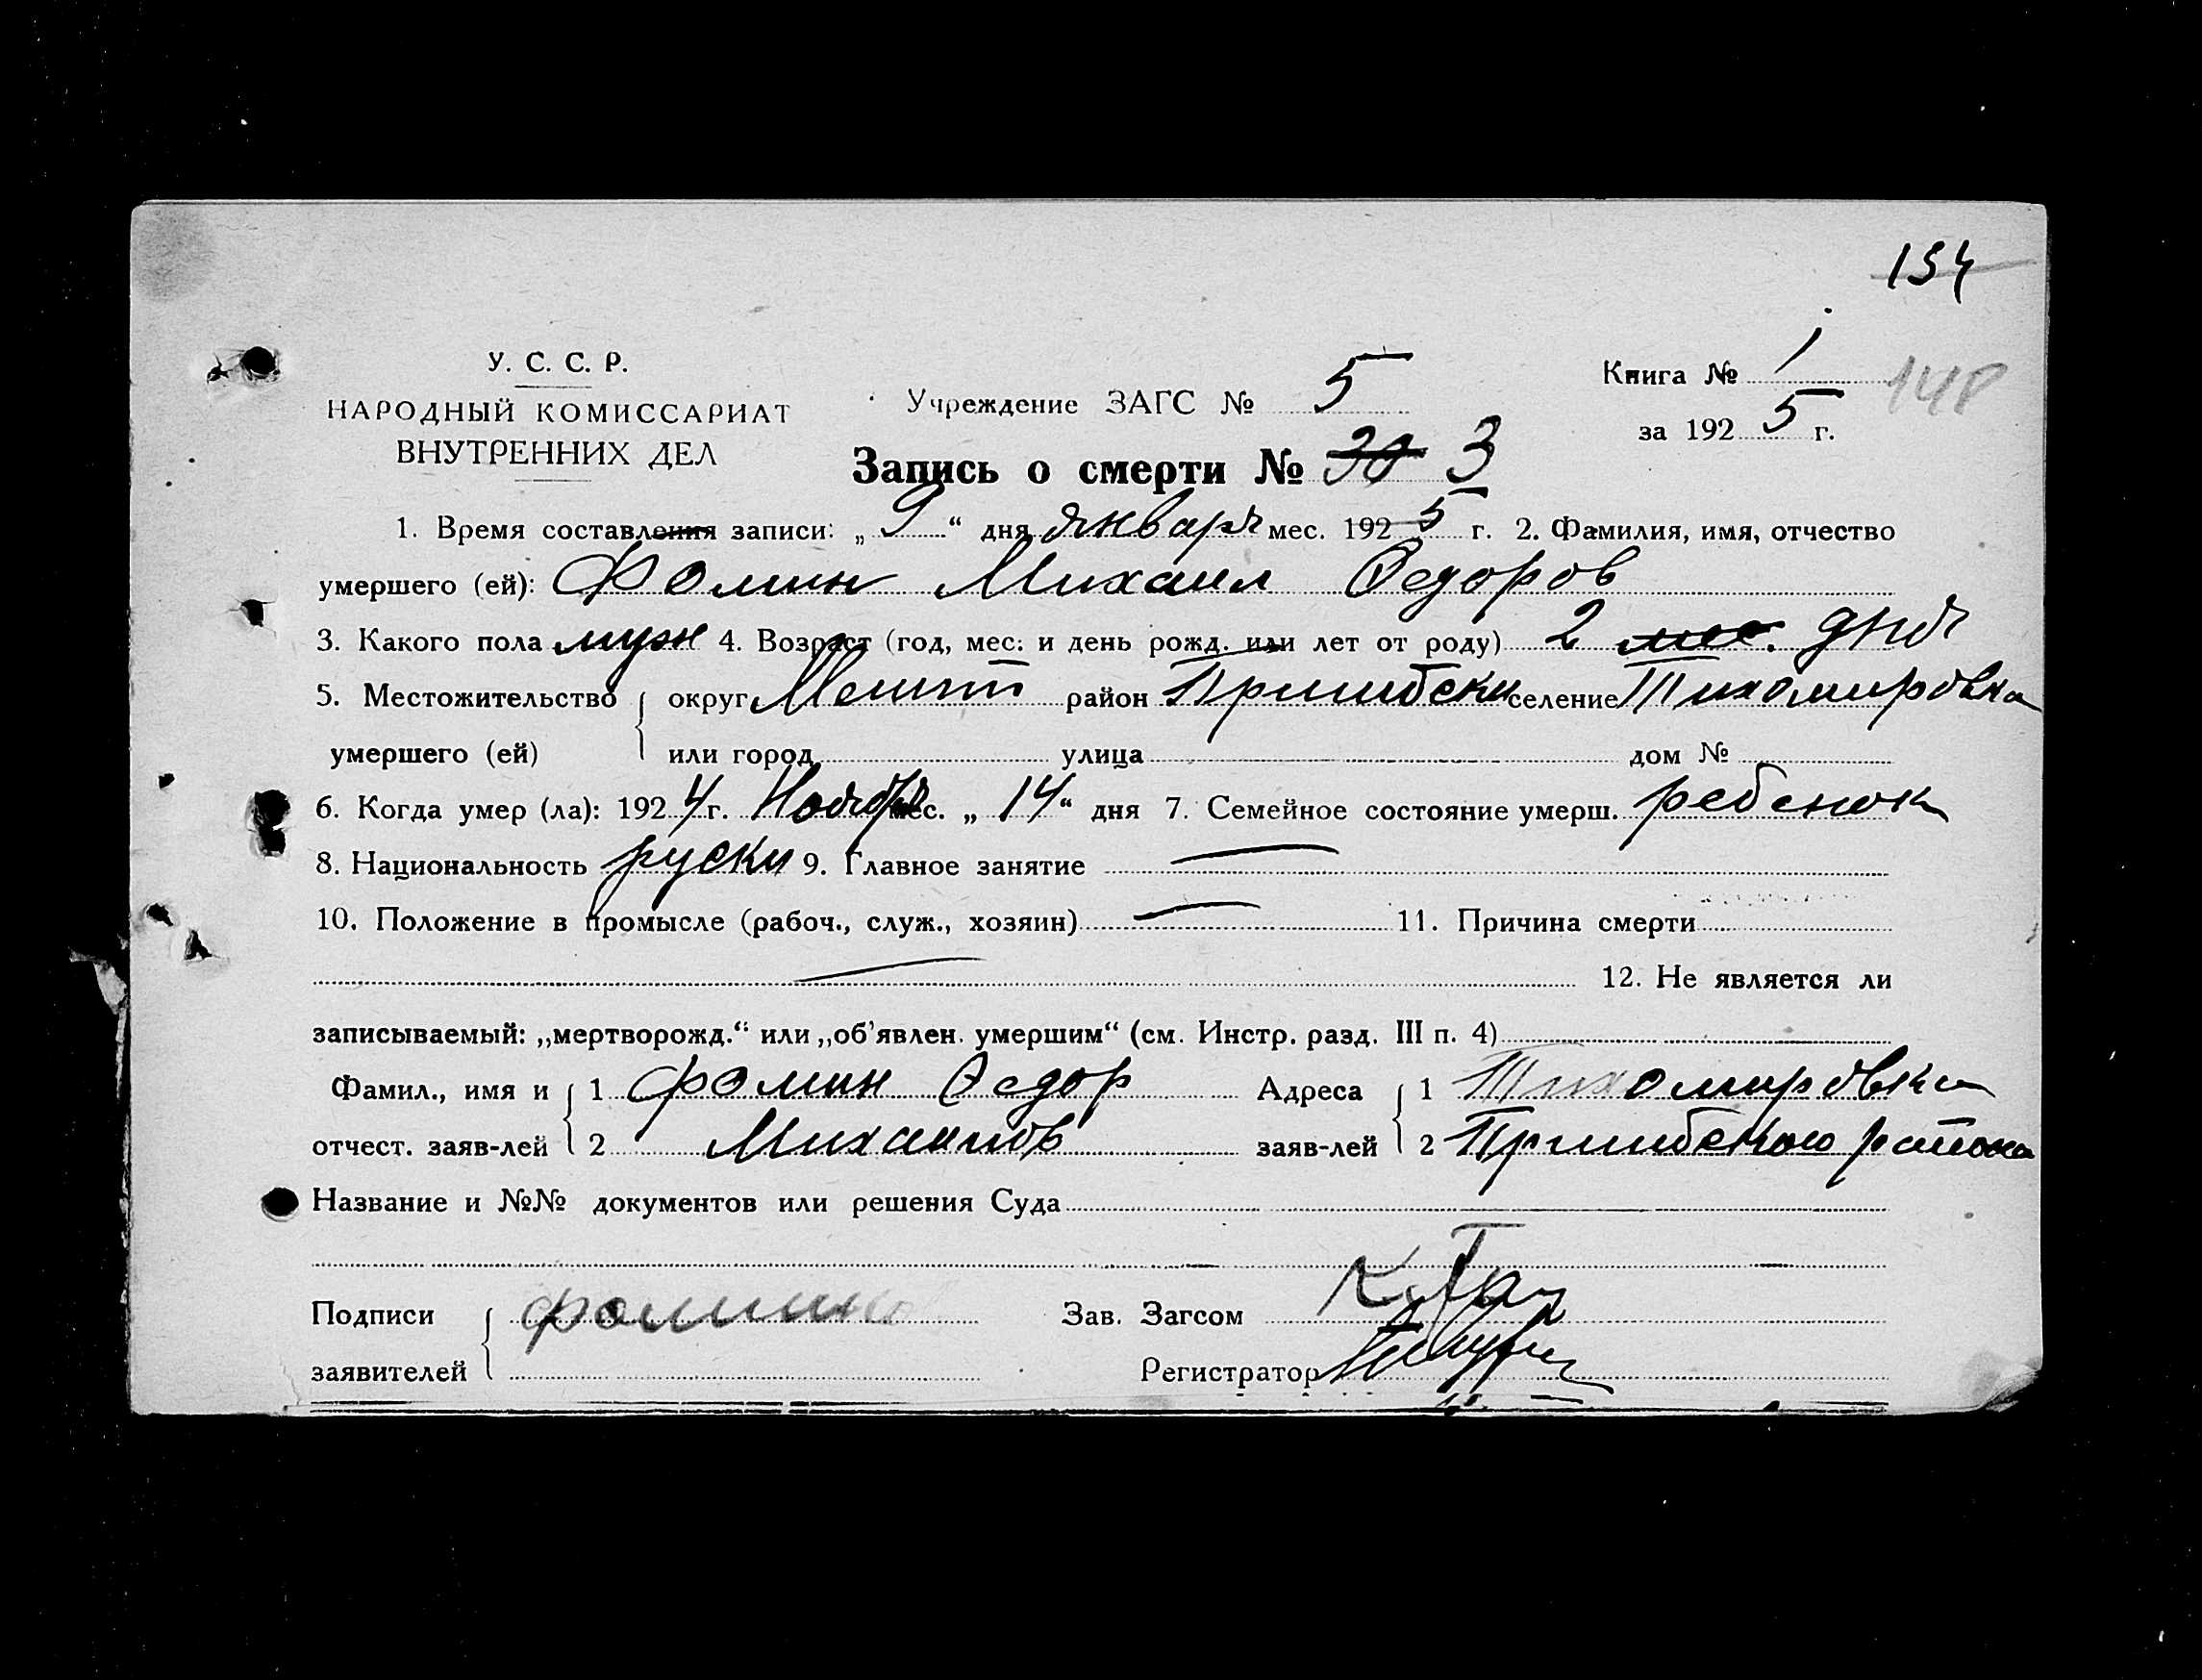 134
У. С. С. Р.
НАРОДНЫЙ КОМИССАРИАТ
ВНУТРЕННИХ ДЕЛ
Учреждение ЗАГС № 5
Книга № 1
148
за 1925 г.
Запись о смерти № 30 3
1. Время составления записи: „9“ дня января мес. 1925 г. 2. Фамилия, имя, отчество
умершего (ей): Фомин Михаил Федоров
3. Какого пола муж 4. Возраст (год, мес. и день рожд. или лет от роду) 2 мес. дня
5. Местожительство округ Мелит район Пришибски селение Тихомировка
умершего (ей) или город улица дом №
6. Когда умер (ла): 1924 г. Ноября мес. „14“ дня 7. Семейное состояние умерш. ребенок
8. Национальность руски 9. Главное занятие
10. Положение в промысле (рабоч., служ., хозяин) 11. Причина смерти
12. Не является ли
записываемый: „мертворожд.“ или „об’явлен. умершим“ (см. Инстр. разд. III п. 4)
Фамил., имя и 1 Фомин Федор Адреса 1 Тихомировка
отчест. заяв-лей 2 Михаилов заяв-лей 2 Пришибского района
Название и №№ документов или решения Суда
Подписи Фомин Зав. Загсом
заявителей Регистратор